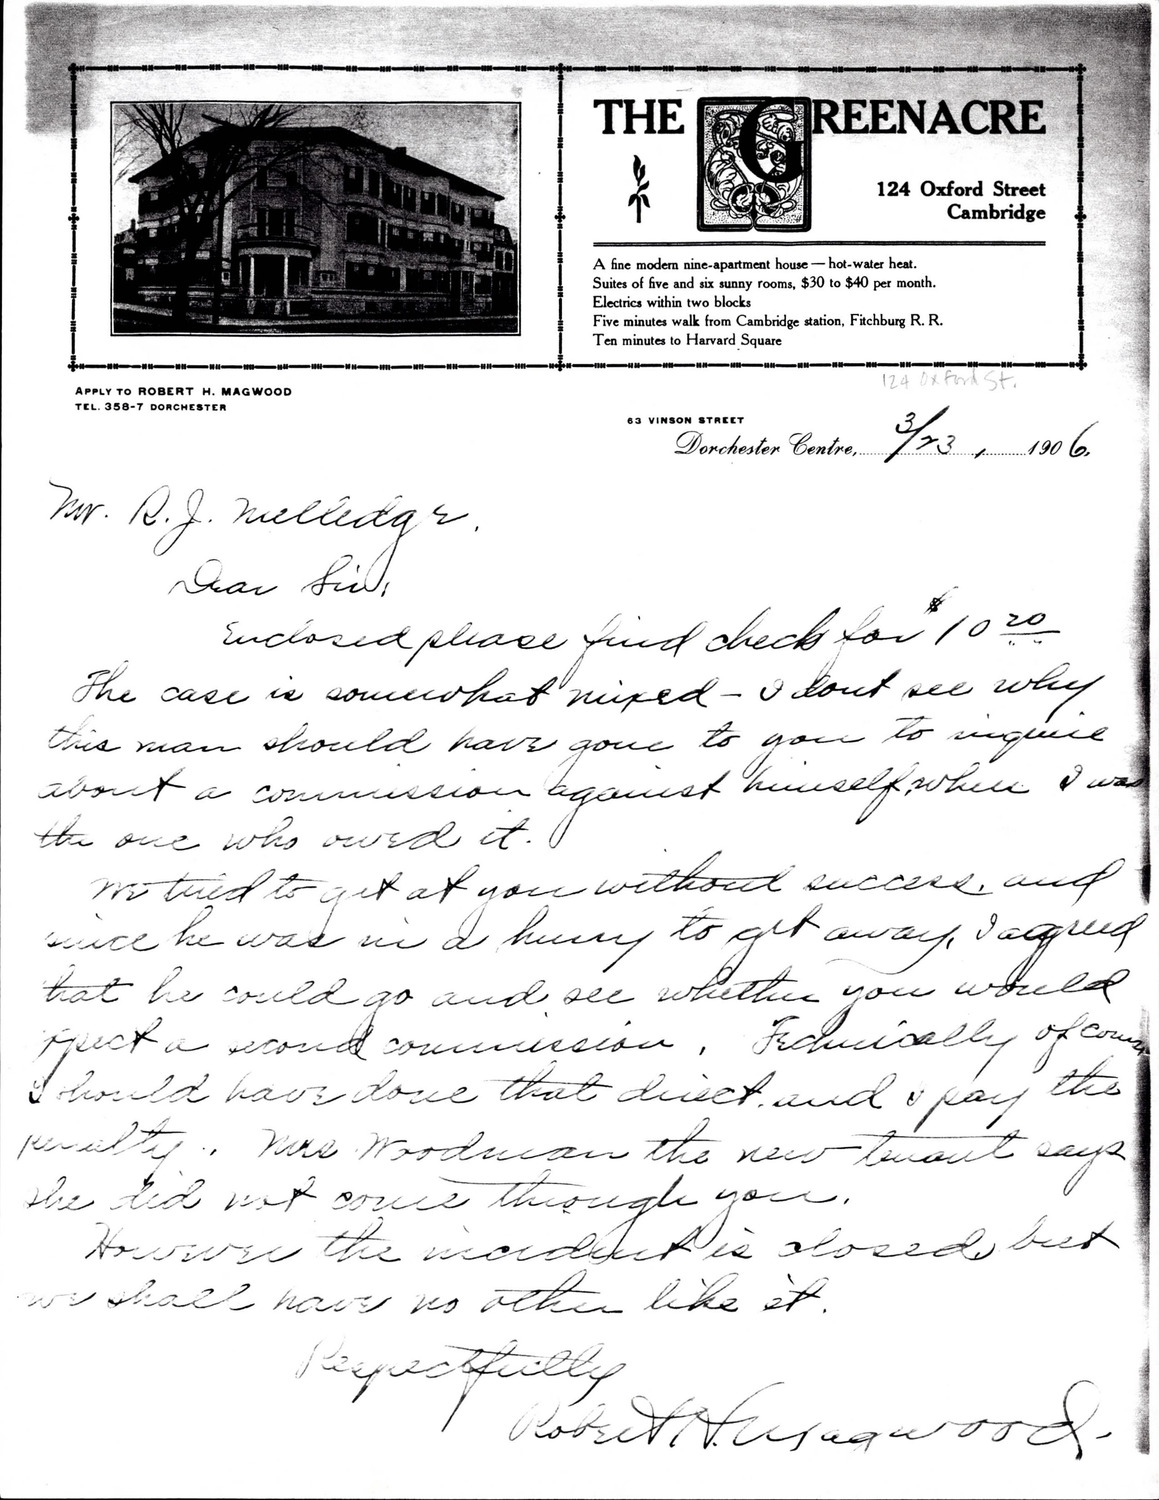 THE GREENACRE
124 Oxford Street
Cambridge
A fine modern nine-apartment house — hot-water heat.
Suites of five and six sunny rooms, $30 to $40 per month.
Electrics within two blocks
Five minutes walk from Cambridge station, Fitchburg R. R.
Ten minutes to Harvard Square
124 Oxford St.
APPLY TO ROBERT H. MAGWOOD
TEL. 358-7 DORCHESTER
63 VINSON STREET
Dorchester Centre, 3/23, 1906.
Mr. R. J. Melledge.
Dear Sir:
Enclosed please find check for $10 20
The case is somewhat mixed – I dont see why
this man should have gone to you to inquire
about a commission against himself, when I was
the one who owed it.
We tried to get at you without success, and
since he was in a hurry to get away, I agreed
that he could go and see whether you would
xpect a second commission. Technically of course
I should have done that direct and I pay the
penalty. Mrs Woodman the new tenant says
she did not come through you.
However the incident is closed, but
we shall have no other like it.
Respectfully
Robert H. Magwood.